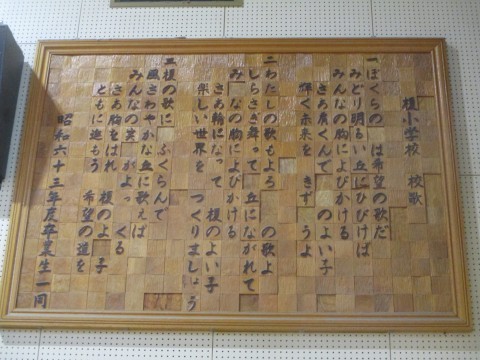 榎小学校 校歌
一ぼくらの は希望の歌だ
みどり明るい丘にひびけば
みんなの胸によびかける
さあ肩くんで のよい子
輝く未来を きず うよ
二わたしの歌もよろ の歌よ
しらさぎ舞って 丘にながれて
み なの胸によびかける
さあ輪になって 榎のよい子
楽しい世界を つくりましょう
三榎の歌に ふくらんで
風さわやかな丘に歌えば
みんなの実 がよっ くる
さあ胸をはれ 榎のよ 子
ともに進もう 希望の道を
昭和六十三年度卒業生一同